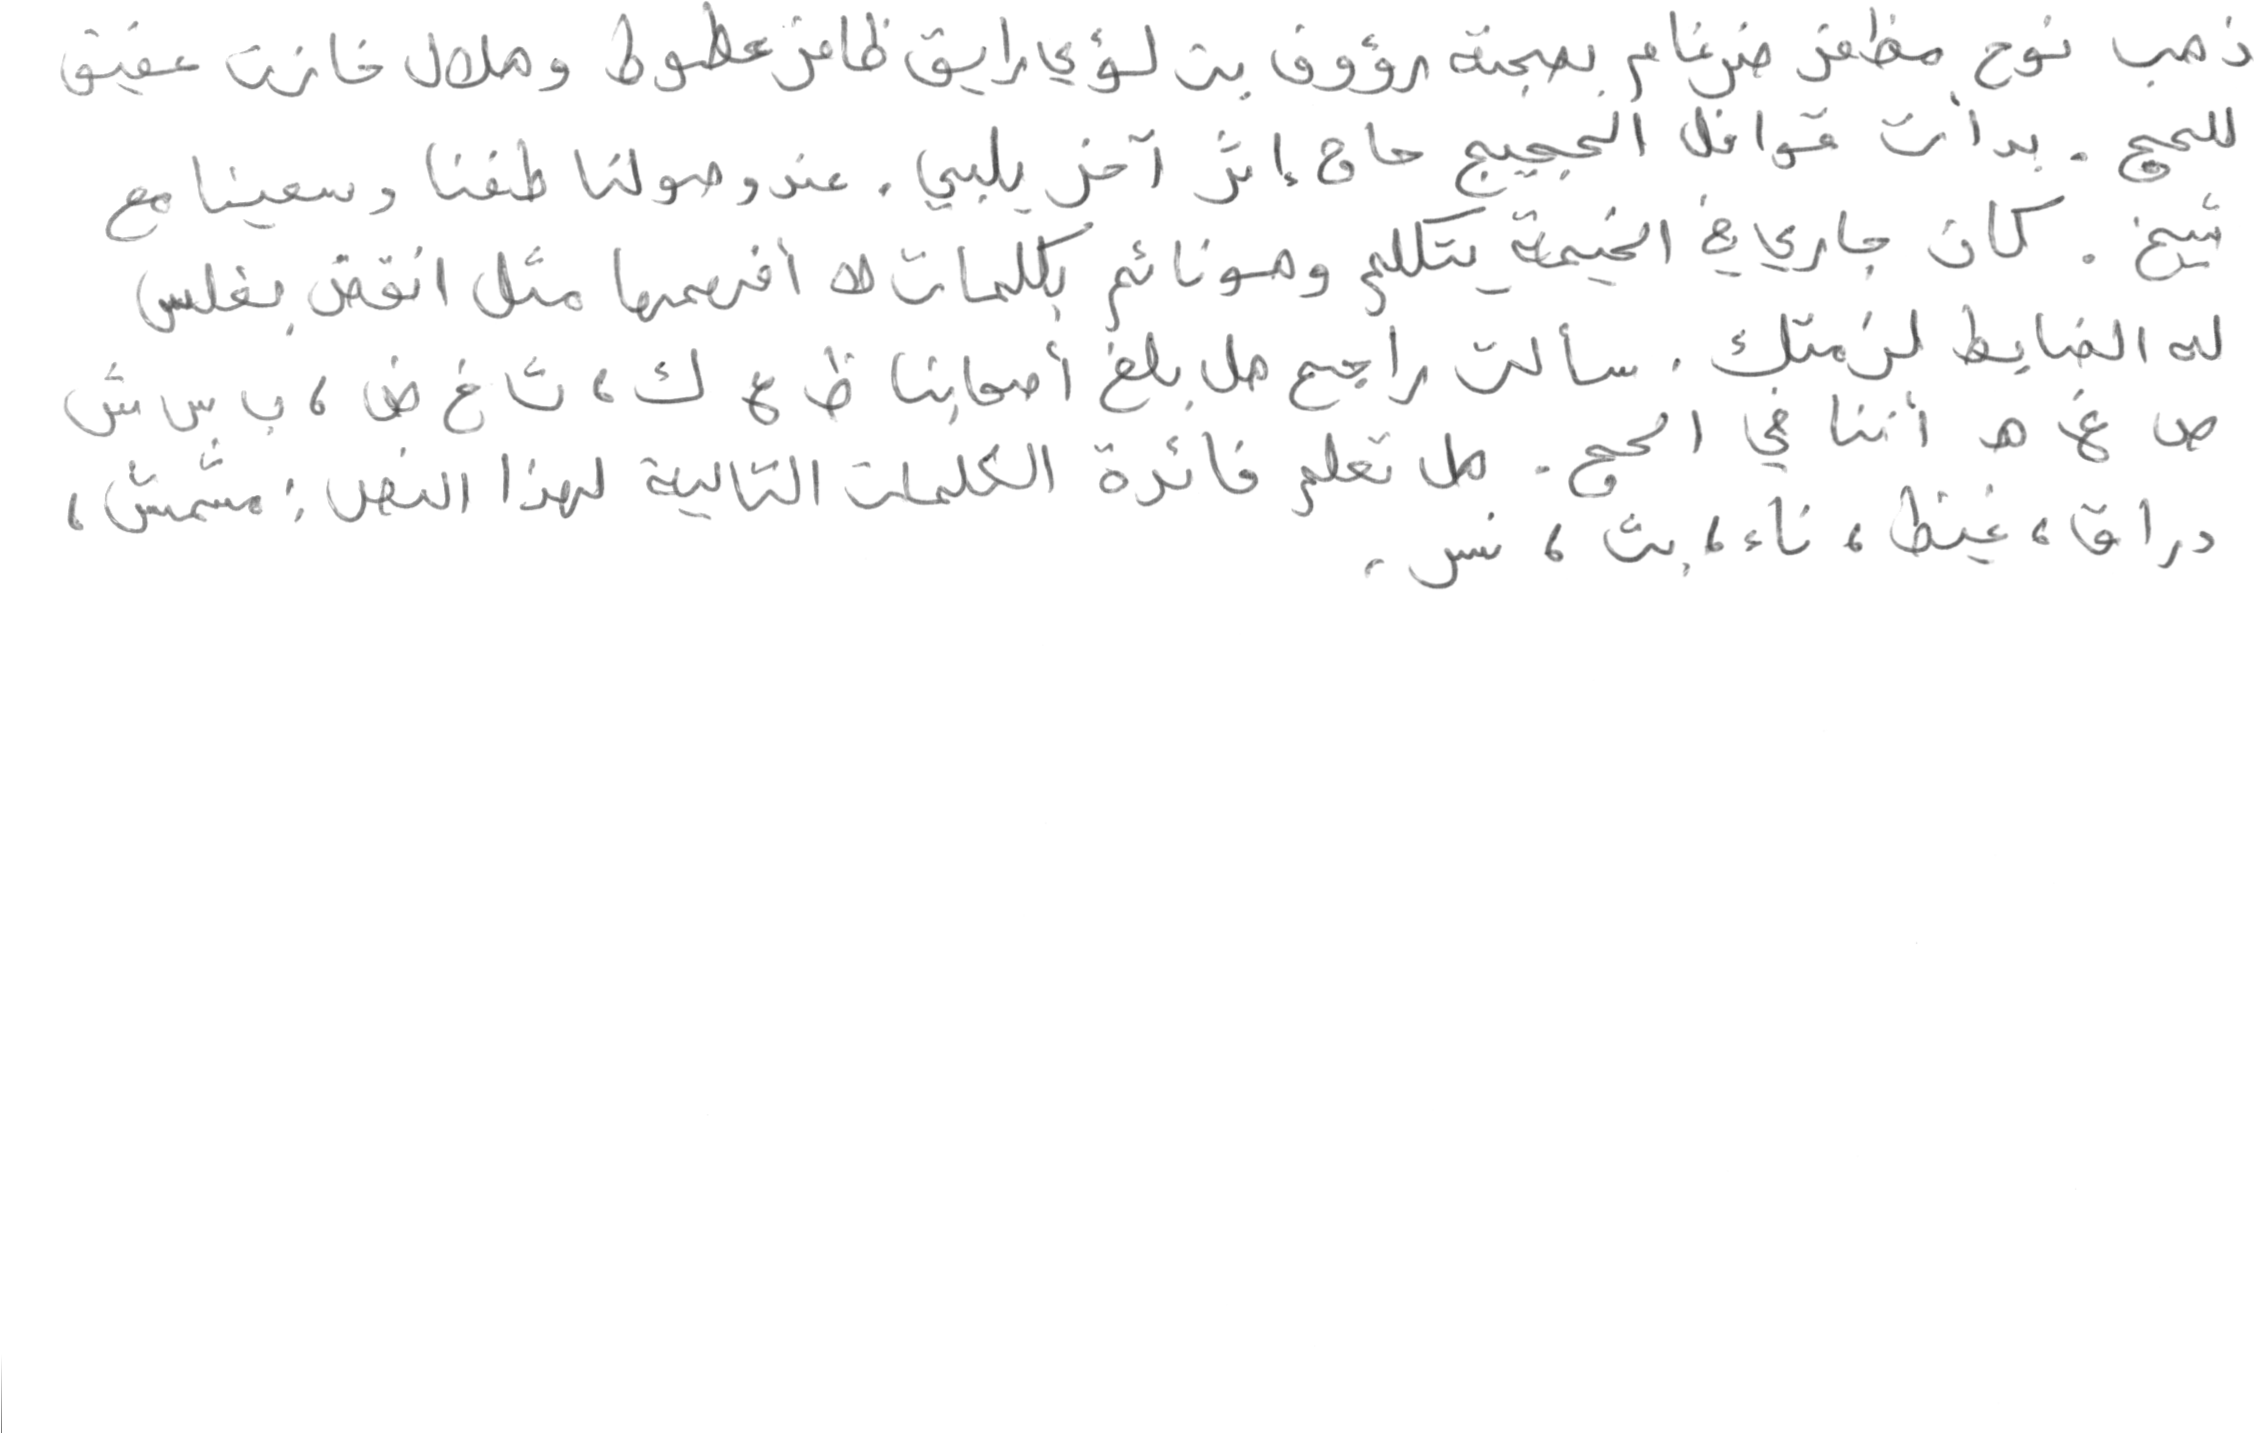 ذهب نوح مظفر ضرغام بصحبة رؤوف بن لؤي رايق ظافر عطوط وهلال خازن عفيق
للحج . بدأت قوافل الحجيج حاج إثر آخر يلبي . عند وصولنا طفنا وسعينا مع
شيخ . كان جاري في الخيمة يتكلم وهو نائم بكلمات لا أفهمها مثل انقض بغلس
له الضابط لزمتك . سألت راجح هل بلغ أصحابنا ظ ع ك ، ث غ ض ، ب س ش
ص غ هـ أننا في الحج . هل تعلم فائدة الكلمات التالية لهذا النص : مشمش ،
دراق ، غيظ ، ناء ، بث ، نس .